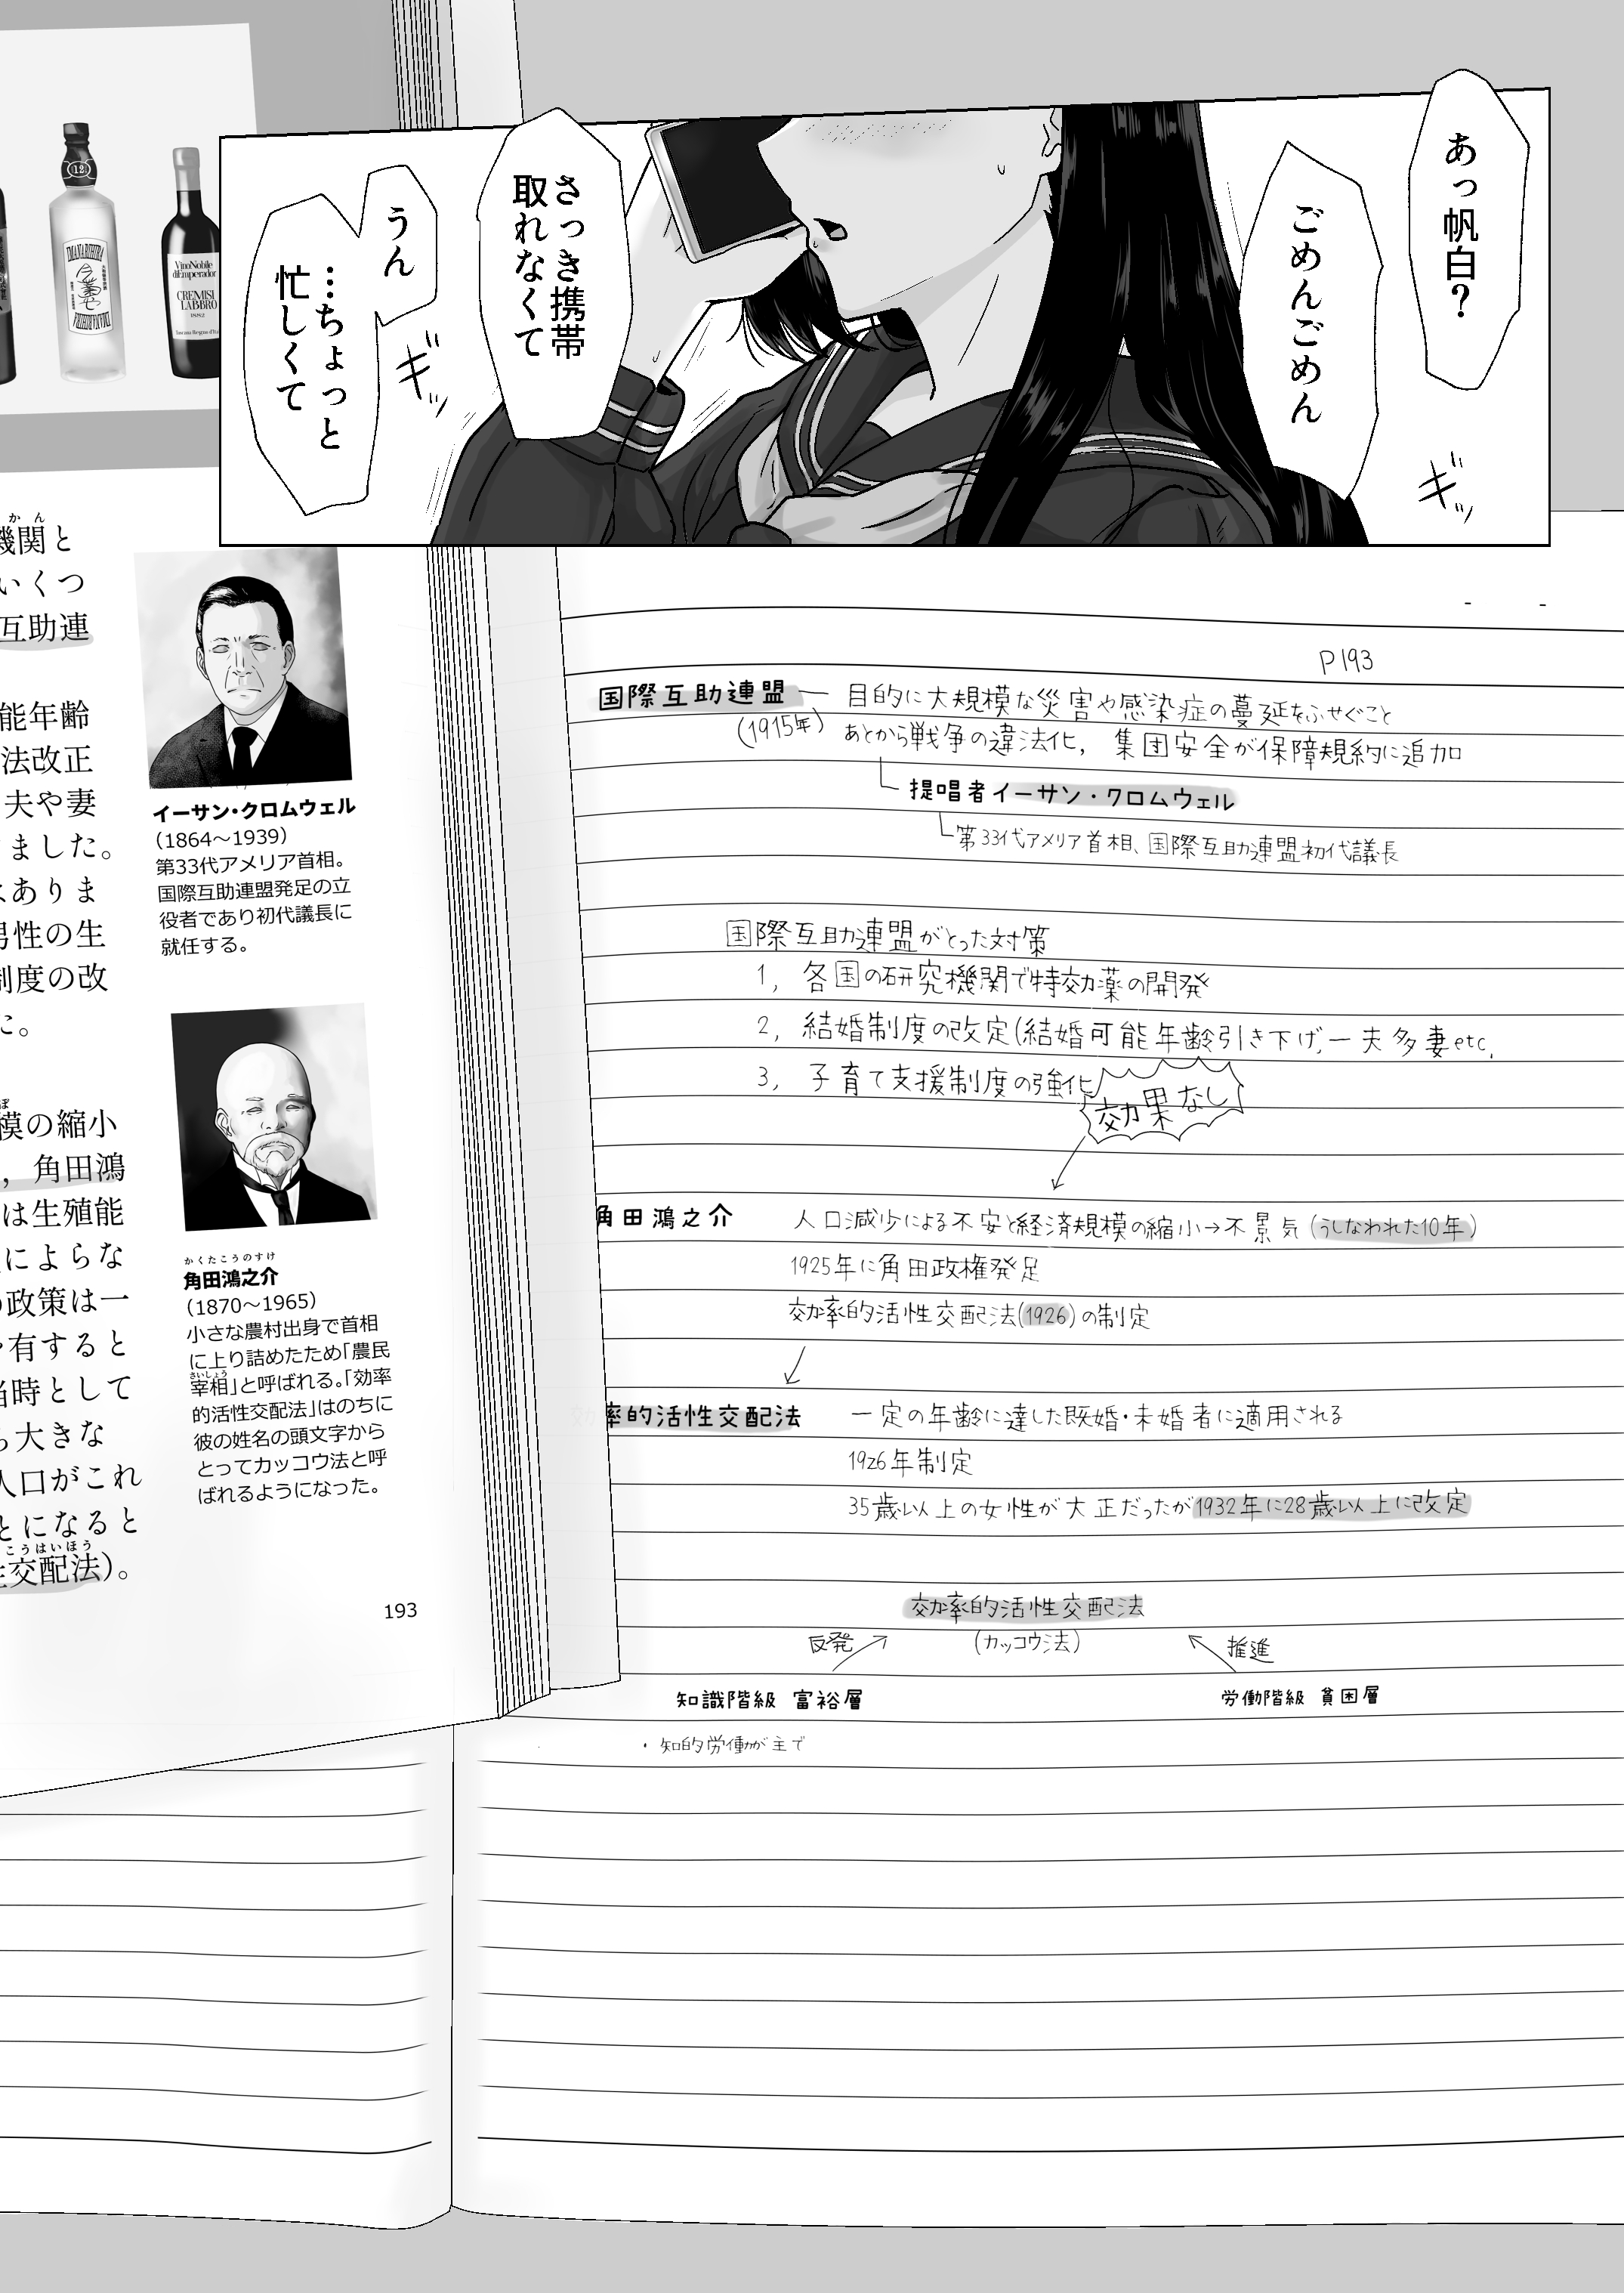 あっ帆白?
ごめんごめん
さっき携帯
取れなくて
うん
…ちょっと
忙しくて
ギッ
ギッ
12
IMANARIHIRA
Vino Nobile
di Emperador
CREMISI
LABBRO
1882
かん
機関と
いくつ
互助連
能年齢
法改正
夫や妻
ました。
はありま
男性の生
制度の改
た。
ぼ
模の縮小
，角田鴻
は生殖能
によらな
の政策は一
を有すると
当時として
も大きな
人口がこれ
とになると
こうはいほう
性交配法）。
イーサン・クロムウェル
（1864～1939）
第33代アメリア首相。
国際互助連盟発足の立
役者であり初代議長に
就任する。
かくたこうのすけ
角田鴻之介
（1870～1965）
小さな農村出身で首相
に上り詰めたため「農民
さいしょう
宰相」と呼ばれる。「効率
的活性交配法」はのちに
彼の姓名の頭文字から
とってカッコウ法と呼
ばれるようになった。
193
P193
国際互助連盟 — 目的に大規模な災害や感染症の蔓延をふせぐこと
(1915年) あとから戦争の違法化, 集団安全が保障規約に追加
提唱者イーサン・クロムウェル
第33代アメリア首相、国際互助連盟初代議長
国際互助連盟がとった対策
1, 各国の研究機関で特効薬の開発
2, 結婚制度の改定(結婚可能年齢引き下げ,一夫多妻etc,
3, 子育て支援制度の強化
効果なし
角田鴻之介 人口減少による不安と経済規模の縮小→不景気(うしなわれた10年)
1925年に角田政権発足
効率的活性交配法(1926)の制定
効率的活性交配法 一定の年齢に達した既婚・未婚者に適用される
1926年制定
35歳以上の女性が大正だったが1932年に28歳以上に改定
効率的活性交配法
反発 (カッコウ法) 推進
知識階級 富裕層 労働階級 貧困層
・知的労働が主で